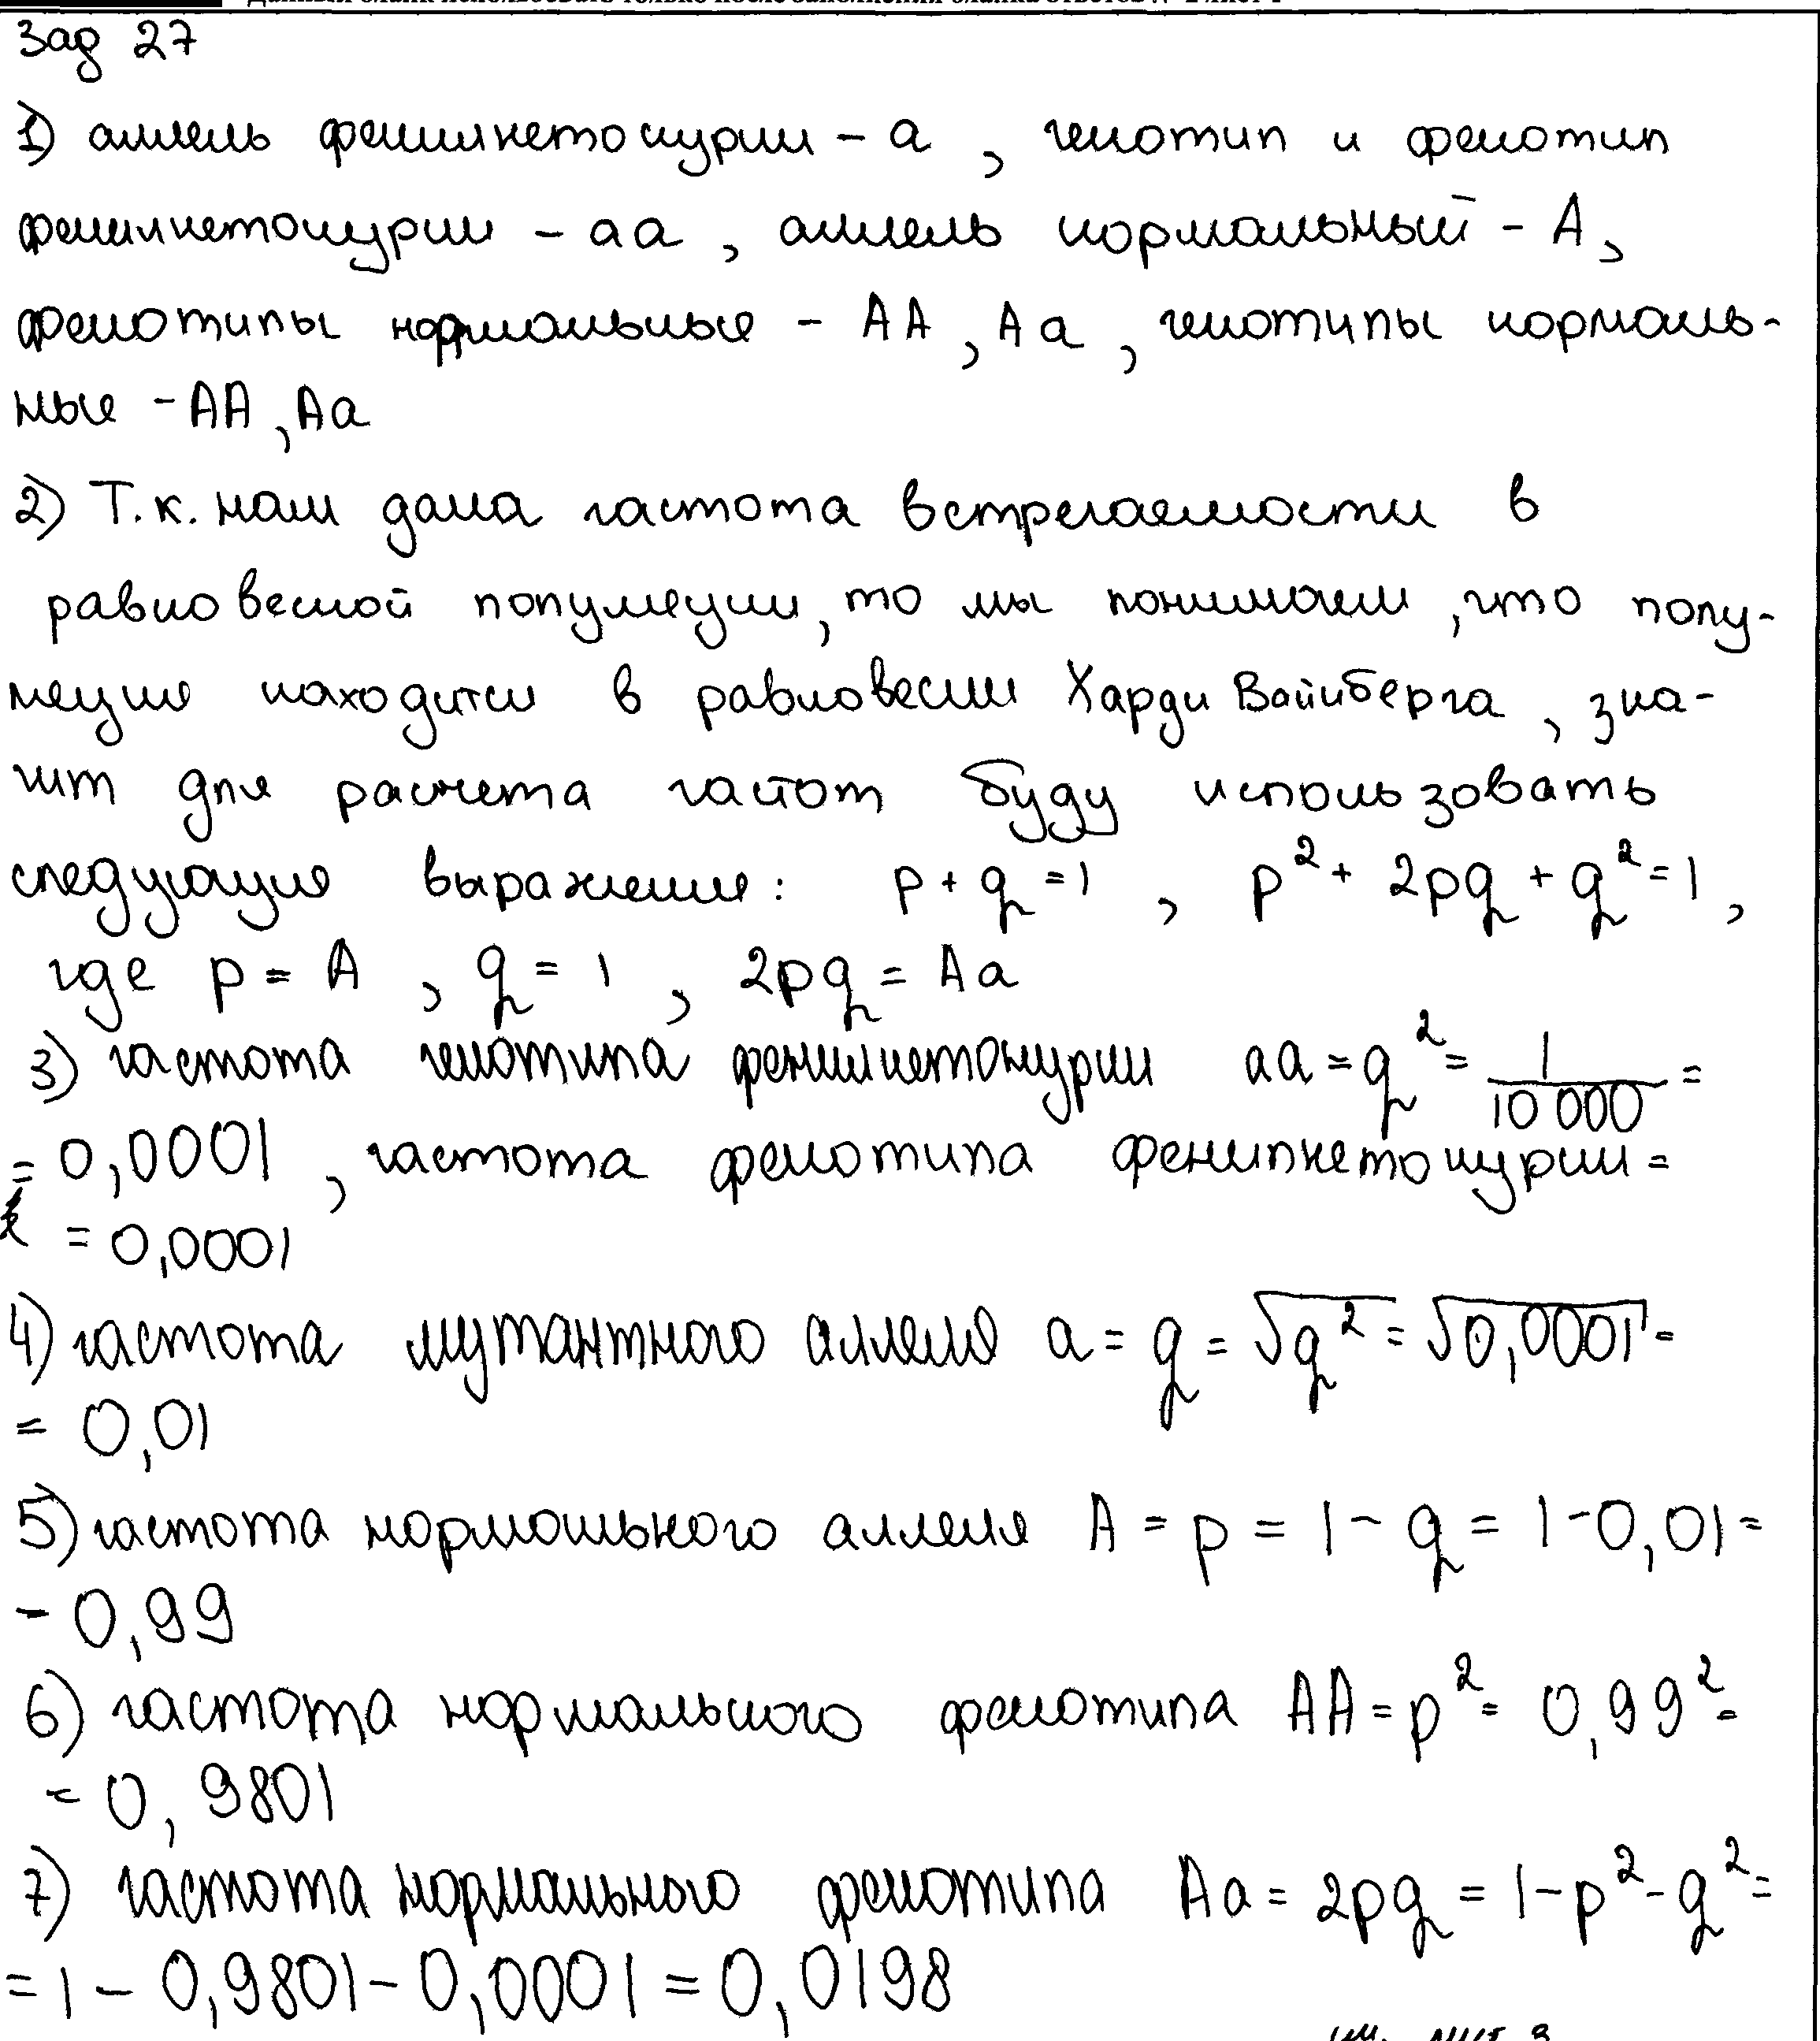 Зад 27
1) аллель фенилкетонурии - а, генотип и фенотип
фенилкетонурии - аа, аллель нормальный - А,
фенотипы нормальные - АА, Аа, генотипы нормаль-
ные - АА, Аа
2) Т.к. нам дана частота встречаемости в
равновесной популяции, то мы понимаем, что попу-
ляция находится в равновесии Харди Вайнберга, зна-
чит для расчета частот буду использовать
следующие выражения: p + q = 1, p² + 2pq + q² = 1,
где p = А, q = 1, 2pq = Аа
3) частота генотипа фенилкетонурии аа = q² = 1/10 000 =
= 0,0001, частота фенотипа фенилкетонурии =
= 0,0001
4) частота мутантного аллеля а = q = √q² = √0,0001 =
= 0,01
5) частота нормального аллеля А = p = 1 - q = 1 - 0,01 =
- 0,99
6) частота нормального фенотипа АА = p² = 0,99² =
= 0,9801
7) частота нормального фенотипа Аа = 2pq = 1 - p² - q² =
= 1 - 0,9801 - 0,0001 = 0,0198
см. лист 3